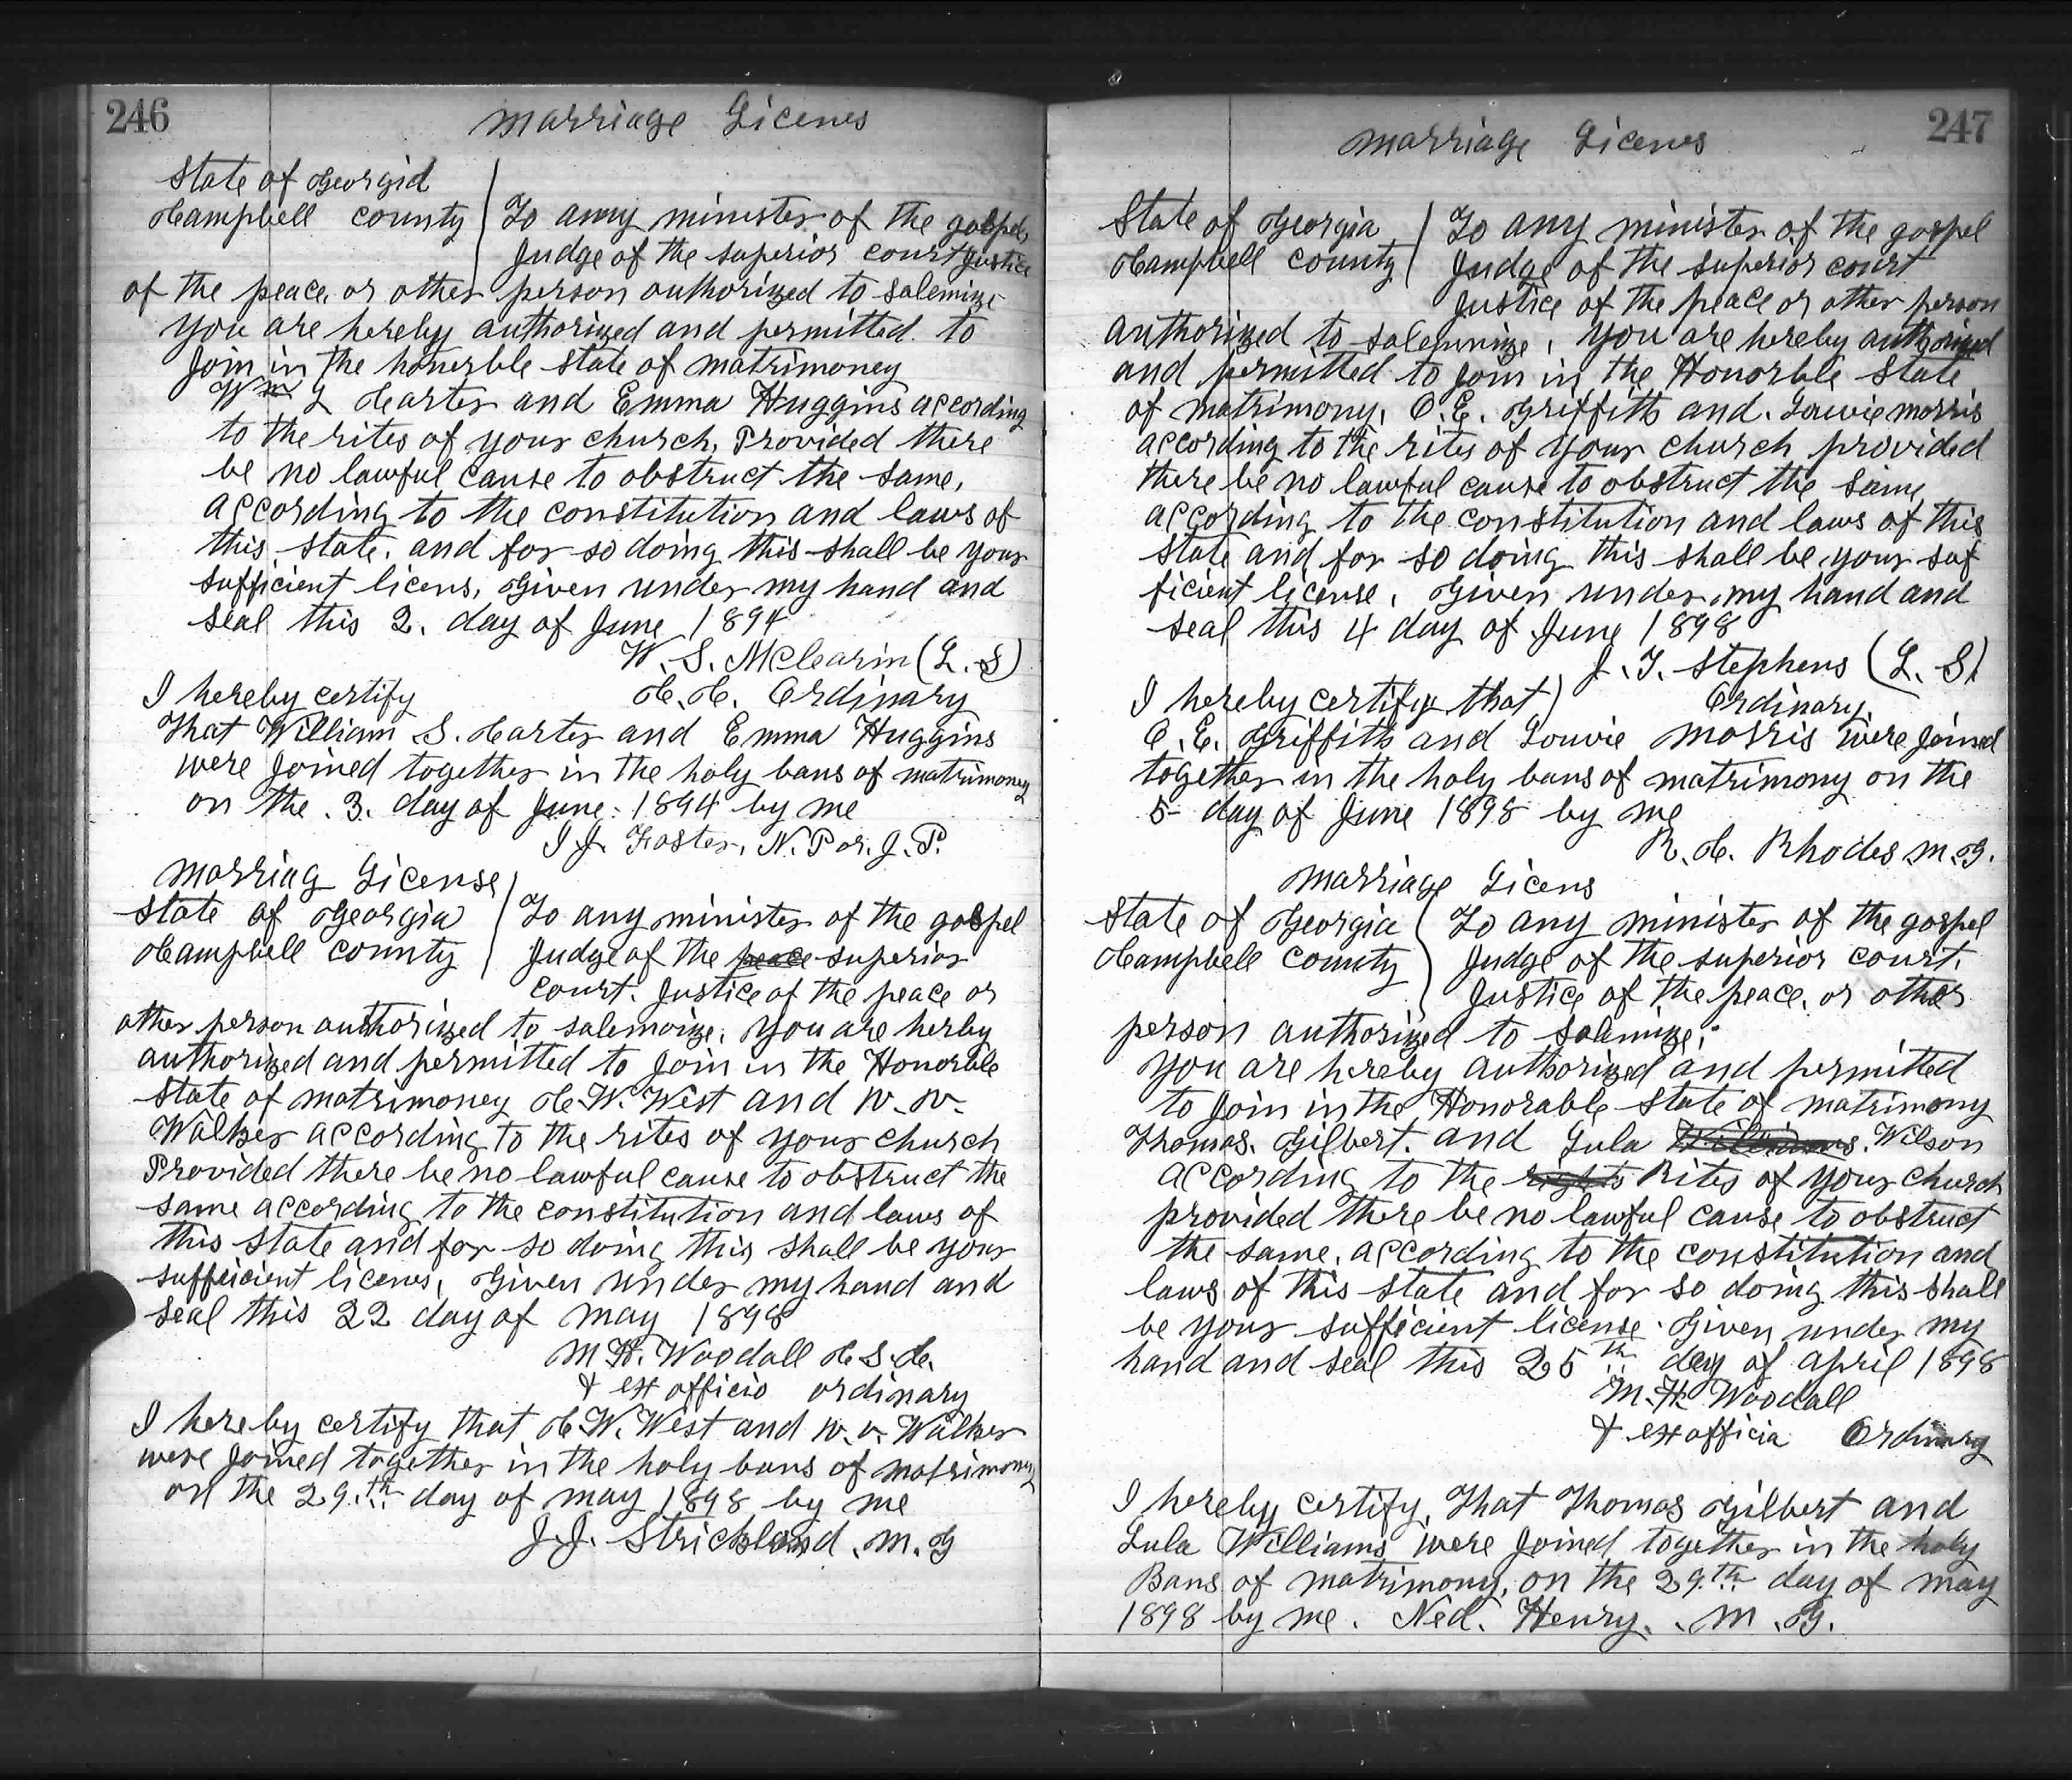 246
Marriage Licenes
State of Georgia
Campbell county To anny minister of the gospel,
Judge of the superior court Justice
of the peace, or other person authorized to salemize
you are hereby authorized and permitted to
Join in the honerble state of matrimoney
Wm L Carter and Emma Huggins according
to the rites of your church, Provided there
be no lawful cause to obstruct the same,
according to the constitution and laws of
this state. and for so doing this shall be your
sufficient licens, Given under my hand and
seal this 2. day of June 1894
W. S. McLearin (L. S)
C. C. Ordinary
I hereby certify
That William S. Carter and Emma Huggins
were Joined together in the holy bans of matrimoney
on the .3. day of June. 1894 by me
J. J. Foster, N. P or. J. P.
Marriag License
State of Georgia To any minister of the gospel
Campbell county Judge of the peace superior
court. Justice of the peace or
other person authorized to salemoize, you are herby
authorized and permitted to Join in the Honorble
State of matrimoney C. W. West and W. V.
Walker according to the rites of your church
Provided there be no lawful cause to obstruct the
same according to the constitution and laws of
this state and for so doing this shall be your
sufficient licenes, Given under my hand and
seal this 22 day of May 1898
M. H. Woodall C. S. C.
& ex officio ordinary
I hereby certify that C. W. West and W. V. Walker
were Joined together in the holy bans of matrimony
on the 29.th day of may 1898 by me
J. J. Strickland. M. G
247
Marriage Licenes
State of Georgia To any minister of the gospel
Campbell county Judge of the superior court
Justice of the peace or other person
authorized to salemnize, you are hereby authorized
and permitted to Join in the Honorble State
of matrimony, C. E. Griffith and. Louvie Morris
according to the rites of your church provided
there be no lawful cause to obstruct the same,
according to the constitution and laws of this
state and for so doing this shall be your suf
ficient license, Given under my hand and
seal this 4 day of June 1898
J. T. Stephens (L. S)
I hereby certify that Ordinary
C. E. Griffith and Louvie Morris were Joined
together in the holy bans of matrimony on the
5- day of June 1898 by me
R. C. Rhodes M. G.
Marriage Licens
State of Georgia To any minister of the gospel
Campbell county Judge of the superior court.
Justice of the peace, or other
person authorized to salemize;
you are hereby authorized and permitted
to Join in the Honorable State of matrimony
Thomas. Gilbert. and Lula Williams. Wilson
according to the rights Rites of your church
provided there be no lawful cause to obstruct
the same, according to the constitution and
laws of this state and for so doing this shall
be your sufficient license. Given under my
hand and seal this 25th day of april 1898
M. H. Woodall
& ex officia Ordinary
I hereby certify, That Thomas Gilbert and
Lula Williams were Joined together in the holy
Bans of matrimony, on the 29.th day of may
1898 by me. Ned. Henry. M. G.